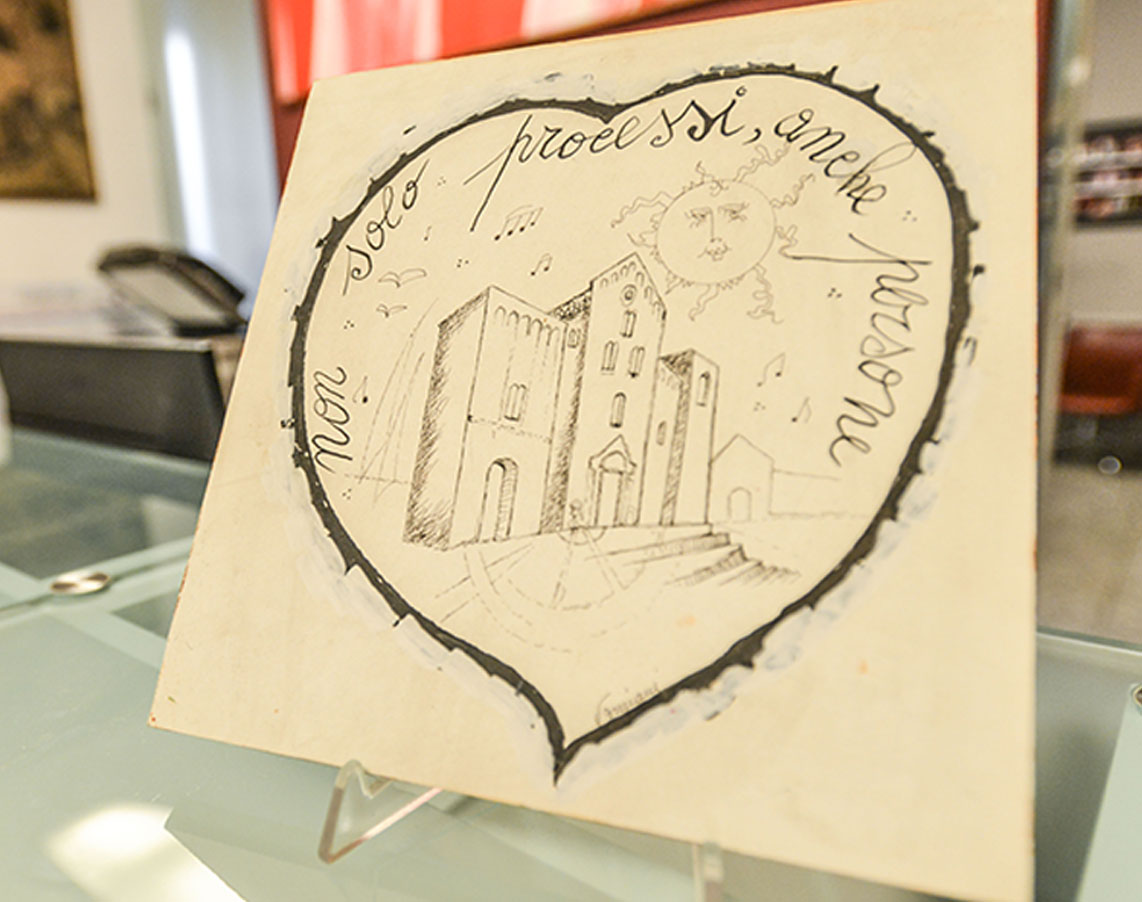 non solo processi, anche persone